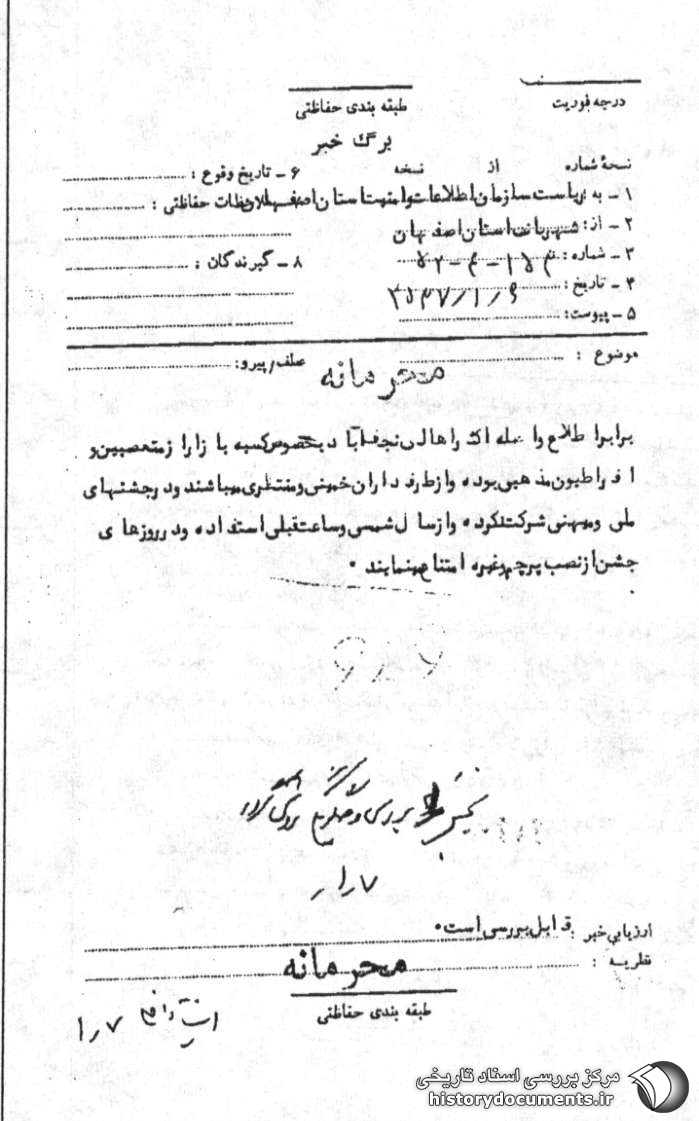 درجه فوریت
طبقه بندی حفاظتی
برگ خبر
نسخهٔ شماره از نسخه
۶ ـ تاریخ وقوع :
۱ ـ به : ریاست سازمان اطلاعات و امنیت استان اصفهان
ملاحظات حفاظتی :
۲ ـ از : شهربانی استان اصفهان
۳ ـ شماره :
۸ ـ گیرندگان :
۴ ـ تاریخ : ۲۵۳۷/۱/۶
۵ ـ پیوست :
موضوع :
عطف/پیرو:
محرمانه
برابر اطلاع واصله اکثر اهالی نجف آباد بخصوص کسبه بازار از متعصبین و
افراطیون مذهبی بوده و از طرفداران خمینی و منتظری میباشند و در جشنهای
ملی و میهنی شرکت نکرده و از سال شمسی و ساعت قبلی استفاده و در روزهای
جشن از نصب پرچم و غیره امتناع مینمایند .
۷ر۱ر
ارزیابی خبر : قابل بررسی است .
نظریه :
محرمانه
طبقه بندی حفاظتی
۷ر۱
مرکز بررسی اسناد تاریخی
historydocuments.ir